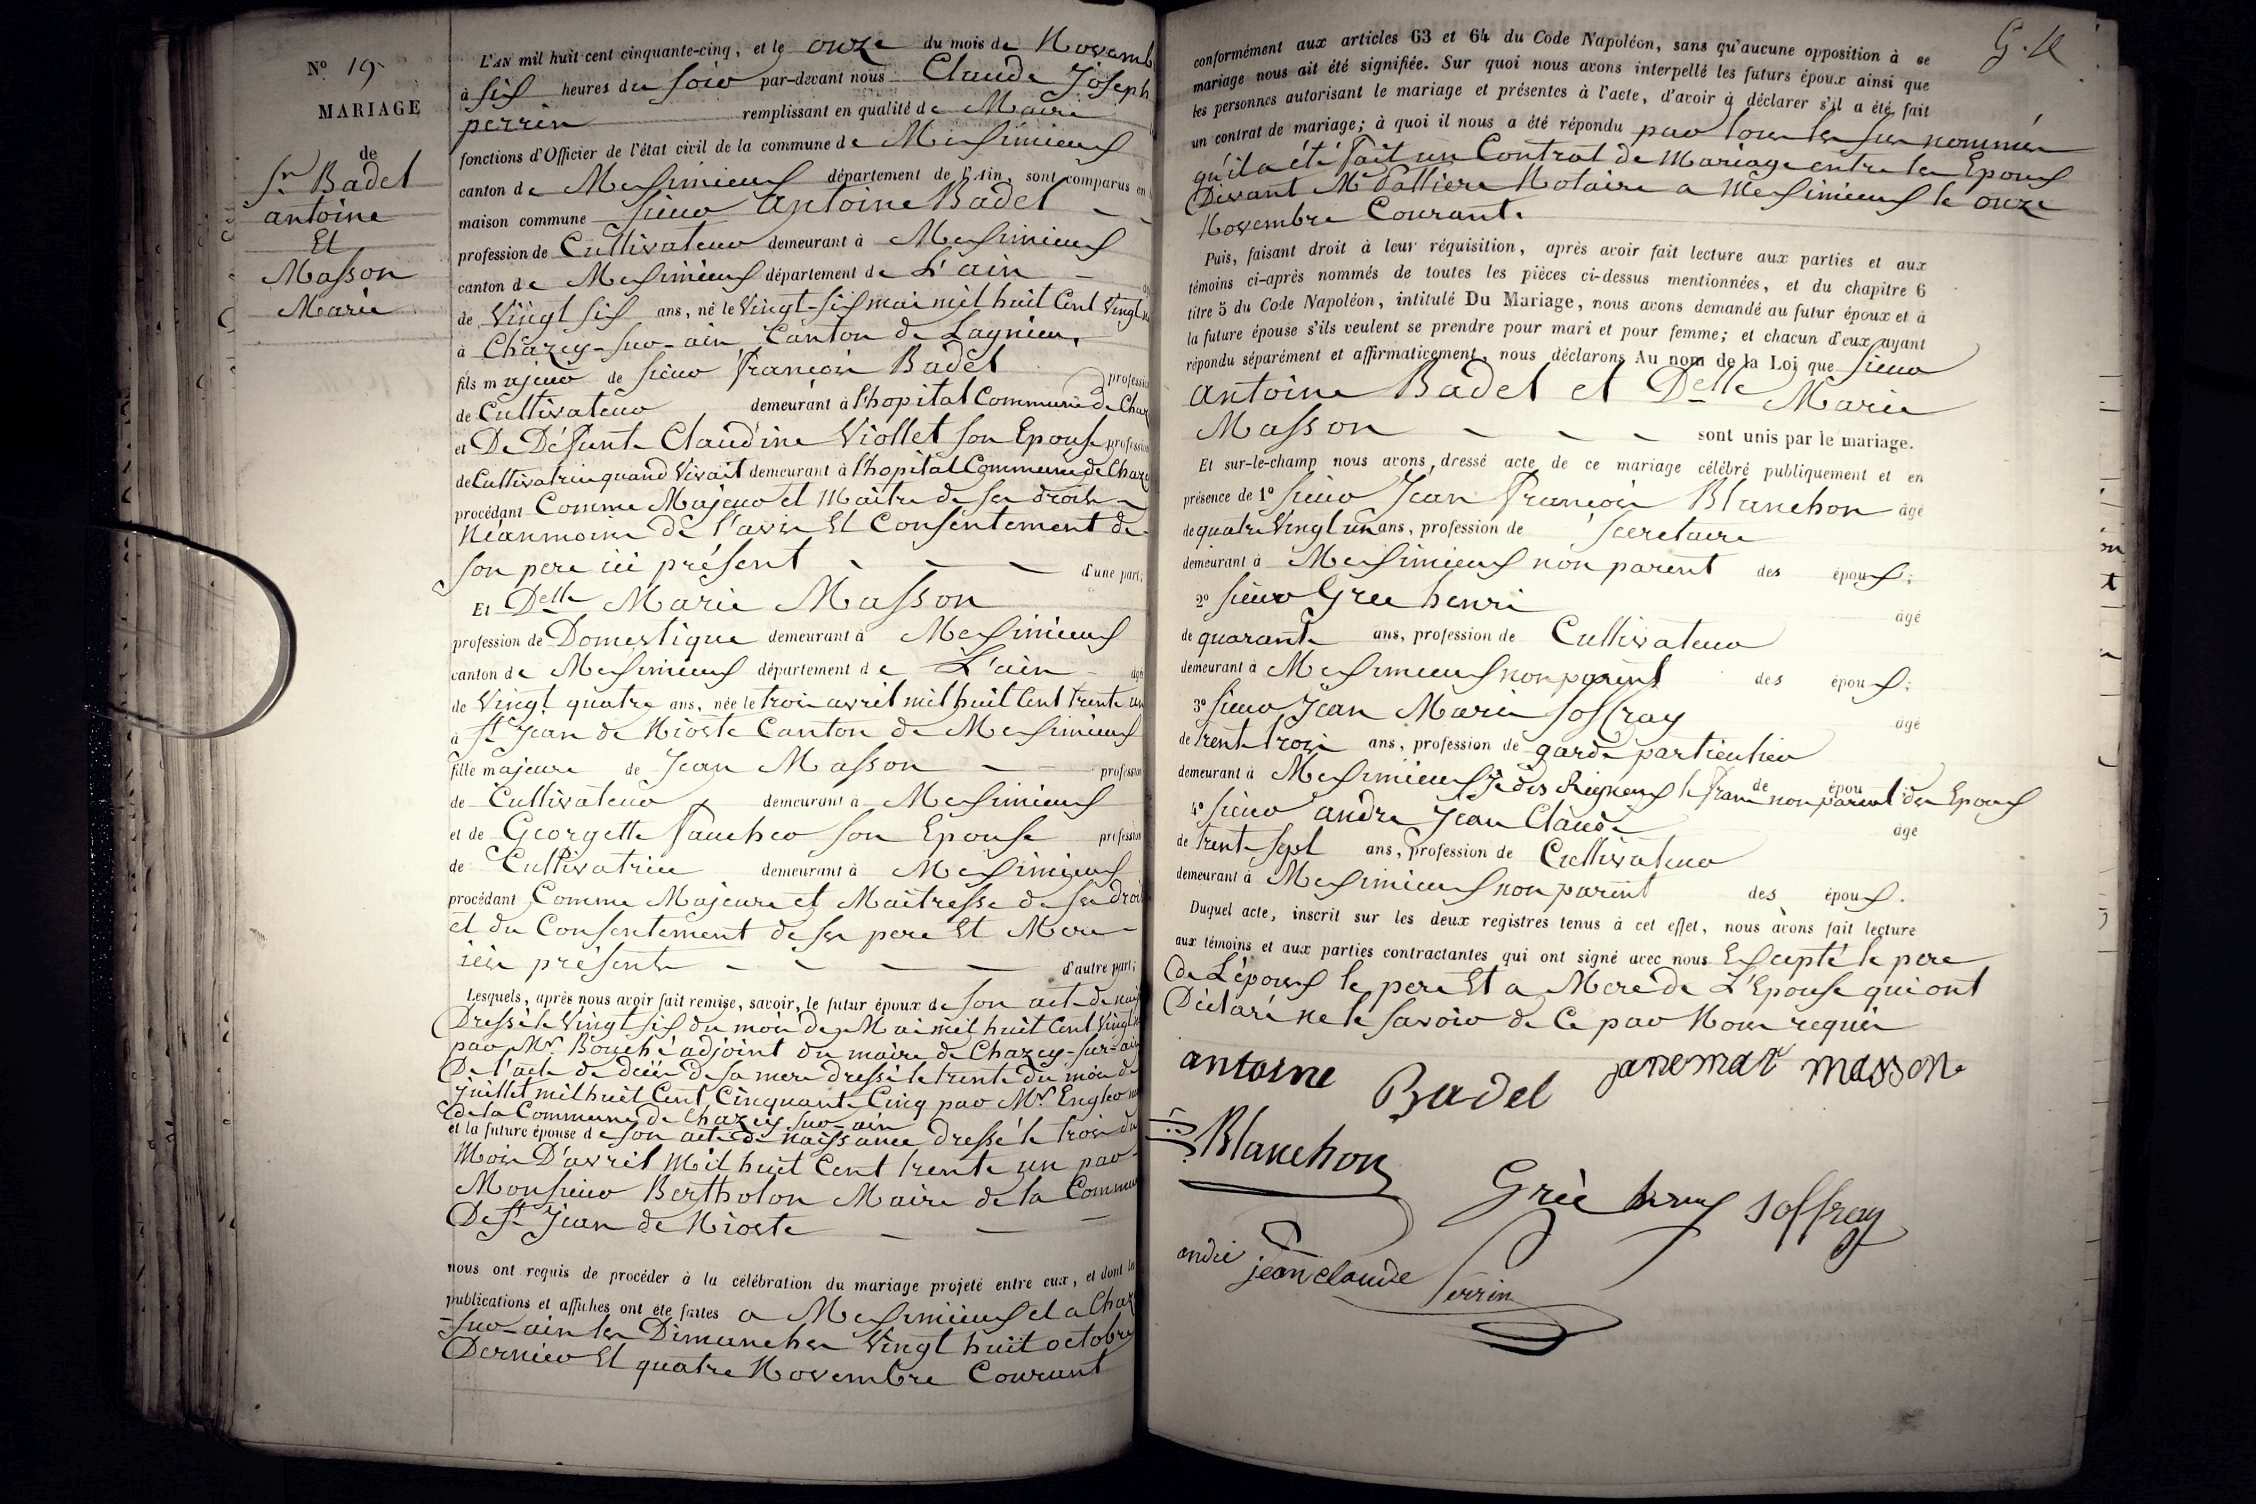 N° 19
MARIAGE
de
Sr Badel
antoine
Et
Masson
Marie
L'AN mil huit cent cinquante-cinq, et le onze du mois de Novemb
à six heures du soir par-devant nous Claude Joseph
perrin remplissant en qualité de Maire
fonctions d'Officier de l'état civil de la commune de Meximieux
canton de Meximieux département de l'Ain, sont comparus en
maison commune sieur Antoine Badel
profession de Cultivateur demeurant à Meximieux
canton de Meximieux département de L'ain
de Vingt six ans, né le Vingt-six mai mil huit Cent Vingt
à Chazey-sur-ain Canton de Lagnieu.
fils majeur de sieur François Badel profession
de Cultivateur demeurant à l'hopital Commune de Chaz
et De Défunte Claudine Viollet son Epouse profession
de Cultivatrice quand Vivait demeurant à l'hopital Commune de Chazey
procédant Comme Majeur et Maître de ses droits
Néanmoins de l'avis Et Consentement de
son pere ici présent d'une part;
Et Delle Marie Masson
profession de Domestique demeurant à Meximieux
canton de Meximieux département de L'ain âgée
de Vingt quatre ans, née le trois avril mil huit Cent trente un
à St Jean de Niost Canton de Meximieux
fille majeure de Jean Masson profession
de Cultivateur demeurant à Meximieux
et de Georgette Faucher son Epouse profession
de Cultivatrice demeurant à Meximieux
procédant Comme Majeure et Maitresse de ses droits
et du Consentement de ses pere Et Mere
ici présents d'autre part;
Lesquels, après nous avoir fait remise, savoir, le futur époux de son acte de nais
Dressé le Vingt six du mois de Mai mil huit Cent Vingt
par Mr. Bouché adjoint du maire de Chazey-sur-ain
De l'acte de décès de sa mere dressé le trente du mois de
juillet mil huit Cent Cinquante Cinq par Mr Engler
de la Commune de Chazey sur ain
et la future épouse de son acte de naissance dressé le trois du
Mois D'avril Mil huit Cent trente un par
Monsieur Bertholon Maire de la Commune
De St Jean de Nioste
nous ont requis de procéder à la célébration du mariage projeté entre eux, et dont les
publications et affiches ont été faites a Meximieux et a Chaz
sur-ain les Dimanches Vingt huit octobre
Dernier Et quatre Novembre Courant
conformément aux articles 63 et 64 du Code Napoléon, sans qu'aucune opposition à ce
mariage nous ait été signifiée. Sur quoi nous avons interpellé les futurs époux ainsi que
les personnes autorisant le mariage et présentes à l'acte, d'avoir à déclarer s'il a été fait
un contrat de mariage; à quoi il nous a été répondu par tous les sus nommés
qu'il a été fait un Contrat de Mariage entre les Epoux
Devant Me Notaire a Meximieux le onze
Novembre Courant.
Puis, faisant droit à leur réquisition, après avoir fait lecture aux parties et aux
témoins ci-après nommés de toutes les pièces ci-dessus mentionnées, et du chapitre 6
titre 5 du Code Napoléon, intitulé Du Mariage, nous avons demandé au futur époux et à
la future épouse s'ils veulent se prendre pour mari et pour femme; et chacun d'eux ayant
répondu séparément et affirmativement, nous déclarons Au nom de la Loi que sieur
Antoine Badel et Delle Marie
Masson sont unis par le mariage.
Et sur-le-champ nous avons dressé acte de ce mariage célébré publiquement et en
présence de 1° sieur Jean François Blanchon âgé
de quatre Vingt un ans, profession de secretaire
demeurant à Meximieux non parent des époux;
2° sieur Grec henri âgé
de quarante ans, profession de Cultivateur
demeurant à Meximieux non parent des époux;
3° sieur Jean Marie Soffray âgé
de trente trois ans, profession de garde particulier
demeurant à Meximieux de époux non parent des Epoux
4° sieur andre Jean Claude âgé
de trente sept ans, profession de Cultivateur
demeurant à Meximieux non parent des époux.
Duquel acte, inscrit sur les deux registres tenus à cet effet, nous avons fait lecture
aux témoins et aux parties contractantes qui ont signé avec nous Excepté le pere
de L'époux le pere Et a Mere de L'Epouse qui ont
Déclaré ne le savoir de Ce par Nous requis
antoine Badel
masson
Blanchon
Gréc henry
soffray
andré jean claude
Perrin